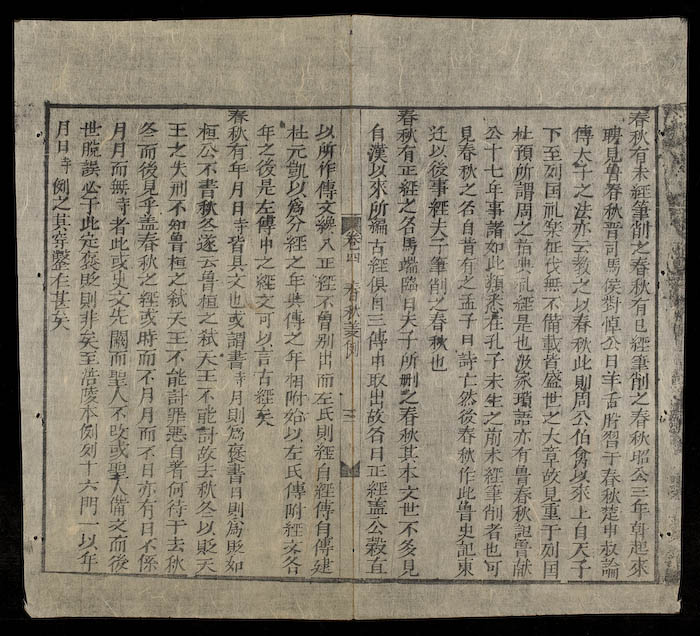 春秋有未經筆削之春秋有已經筆削之春秋昭公三年韓起來
聘見魯春秋晋司馬侯對悼公曰羊舌肸習于春秋楚申叔論
傅太子之法亦云教之以春秋此則周公伯禽以來上自天子
下至列国礼楽征伐無不備載者盛世之大章故見重于列国
杜預所謂周之旧典礼經是也汲冢瑣語亦有魯春秋記魯献
公十七年事諸如此類悉在孔子未生之前未經筆削者也可
見春秋之名自昔有之孟子曰詩亡然後春秋作此魯史記東
迁以後事經夫子筆削之春秋也
春秋有正經之名馬端臨曰夫子所删之春秋其本文世不多見
自漢以來所編古經俱自三傳中取出故名曰正經盖公榖直
卷四 春秋義例 三
以所作傳文攙入正經不曾別出而左氏則經自經傳自傳建
杜元凱以為分經之年與傳之年相附始以左氏傳附經文各
年之後是左傳中之經文可以言古經矣
春秋有年月日寺皆具文也或謂書寺月則為褒書日則為貶如
桓公不書秋冬遂云魯桓之弒天王不能討故去秋冬以貶天
王之失刑不知魯桓之弒天王不能討罪悪自著何待于去秋
冬而後見乎盖春秋之經或時而不月月而不日亦有日不係
月月而無寺者此或史文先闕而聖人不改或聖人備之而後
世脫誤必于此定褒貶則非矣至涪陵本例列十六門一以年
月日寺例之其穿鑿在甚矣